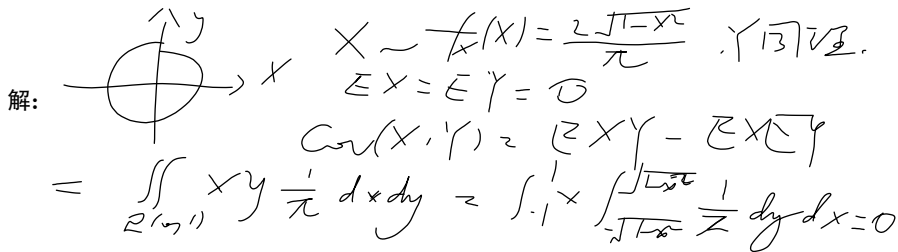 y
X ~ f_X(X) = \frac{2\sqrt{1-x^2}}{\pi} . Y同理.
x
解:
EX = EY = 0
Cov(X,Y) = EXY - EXEY
= ∬ xy \frac{1}{\pi} dxdy = \int_{-1}^{1} x \int_{-\sqrt{1-x^2}}^{\sqrt{1-x^2}} \frac{1}{2} dy dx = 0